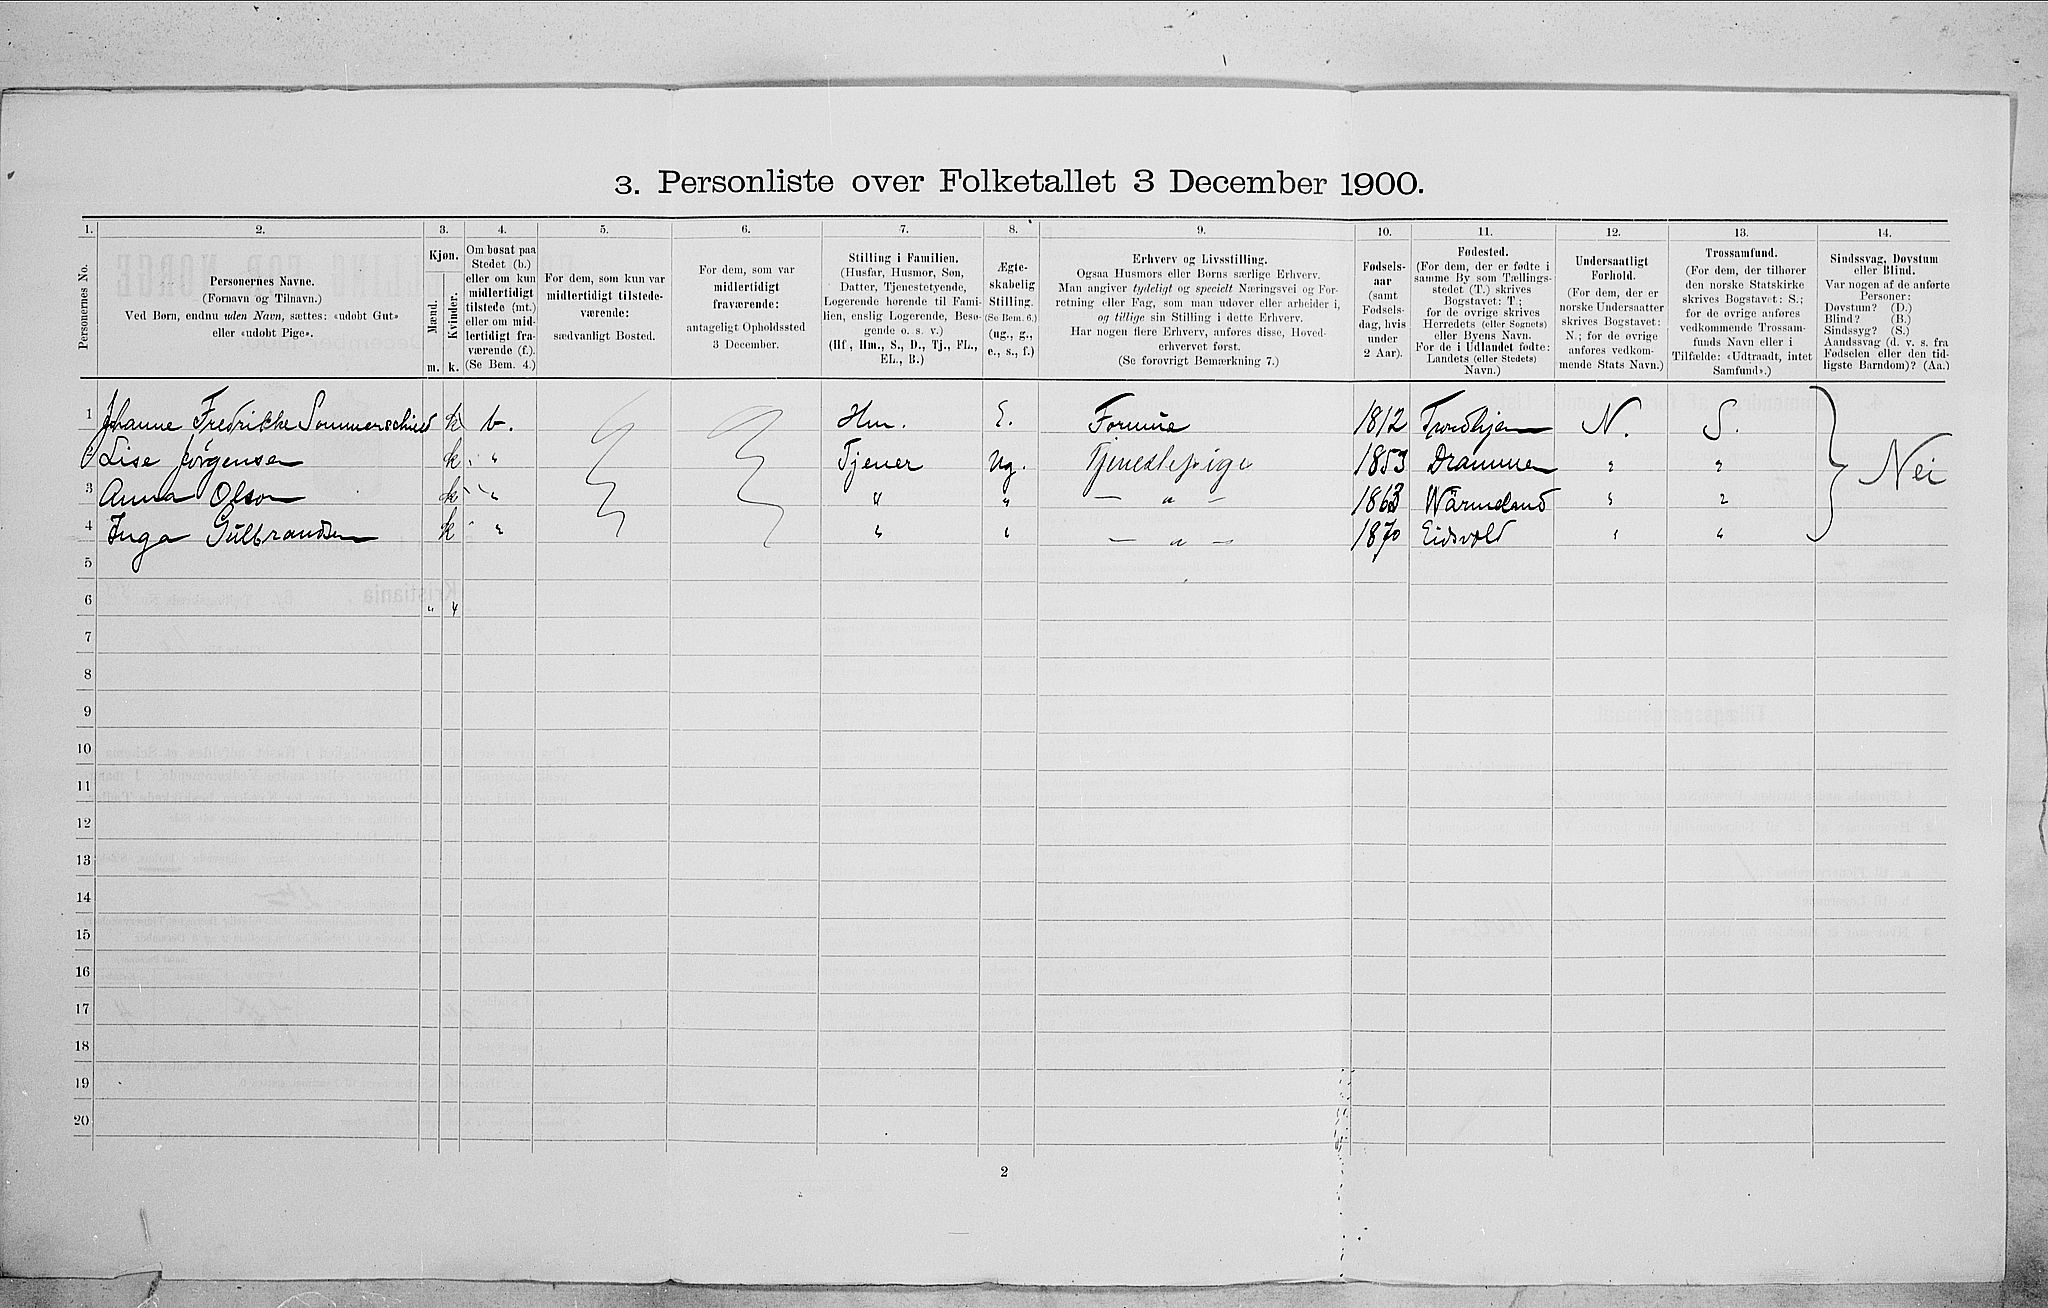 3. Personliste over Folketallet 3 December 1900.
1. 2. 3. 4. 5. 6. 7. 8. 9. 10. 11. 12. 13. 14.
Personernes No.
Personernes Navne.
(Fornavn og Tilnavn.)
Ved Børn, endnu uden Navn, sættes: «udøbt Gut»
eller «udøbt Pige».
Kjøn.
Mænd.
Kvinder.
m. k.
Om bosat paa
Stedet (b.)
eller om kun
midlertidigt
tilstede (mt.)
eller om mid-
lertidigt fra-
værende (f.).
(Se Bem. 4.)
For dem, som kun var
midlertidigt tilstede-
værende:
sædvanligt Bosted.
For dem, som var
midlertidigt
fraværende:
antageligt Opholdssted
3 December.
Stilling i Familien.
(Husfar, Husmor, Søn,
Datter, Tjenestetyende,
Logerende hørende til Fami-
lien, enslig Logerende, Besø-
gende o. s. v.)
(Hf., Hm., S., D., Tj., FL.,
EL., B.)
Ægte-
skabelig
Stilling.
(Se Bem. 6.)
(ug., g.,
e., s., f.)
Erhverv og Livsstilling.
Ogsaa Husmors eller Børns særlige Erhverv.
Man angiver tydeligt og specielt Næringsvei og For-
retning eller Fag, som man udøver eller arbeider i,
og tillige sin Stilling i dette Erhverv.
Har nogen flere Erhverv, anføres disse, Hoved-
erhvervet først.
(Se forøvrigt Bemærkning 7.)
Fødsels-
aar
(samt
Fødsels-
dag, hvis
under
2 Aar).
Fødested.
(For dem, der er fødte i
samme By som Tællings-
stedet (T.) skrives
Bogstavet: T.;
for de øvrige skrives
Herredets (eller Sognets)
eller Byens Navn.
For de i Udlandet fødte:
Landets (eller Stedets)
Navn.)
Undersaatligt
Forhold.
(For dem, der er
norske Undersaatter
skrives Bogstavet:
N.; for de øvrige
anføres vedkom-
mende Stats Navn.)
Trossamfund.
(For dem, der tilhører
den norske Statskirke
skrives Bogstavet: S.;
for de øvrige anføres
vedkommende Trossam-
funds Navn eller i
Tilfælde: «Udtraadt, intet
Samfund».)
Sindssvag, Døvstum
eller Blind.
Var nogen af de anførte
Personer:
Døvstum? (D.)
Blind? (B.)
Sindssyg? (S.)
Aandssvag (d. v. s. fra
Fødselen eller den tid-
ligste Barndom)? (Aa.)
1 Johanne Fredrikke Sommerschield k b. Hm. E. Formue 1812 Trondhjem N. S.
2 Lise Jørgensen k " Tjener Ug. Tjenestepige 1853 Drammen " " Nei
3 Anna Olson k " " " — " — 1863 Wärmeland " "
4 Inga Gulbrandsen k " " " — " — 1870 Eidsvold " "
5
6 " 4
7
8
9
10
11
12
13
14
15
16
17
18
19
20
2